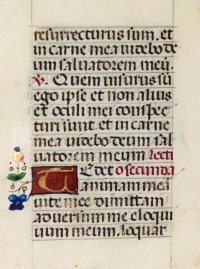 resurrecturus sum, et
in carne mea videbo de
um salvatorem meũ.
V. Quem visurus sũ
ego ipse et non alius
et oculi mei conspec
turi sunt. et in carne
mea videbo deum sal
vatorem meum. lecti
o secunda
Tedet
animam mea
vite mee dimittam
adversum me eloqui
um meum loquar